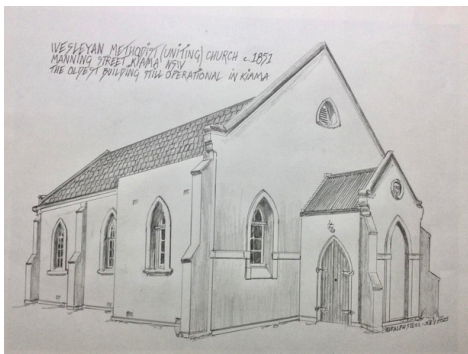 WESLEYAN METHODIST (UNITING) CHURCH c.1851
MANNING STREET, KIAMA NSW
THE OLDEST BUILDING STILL OPERATIONAL IN KIAMA